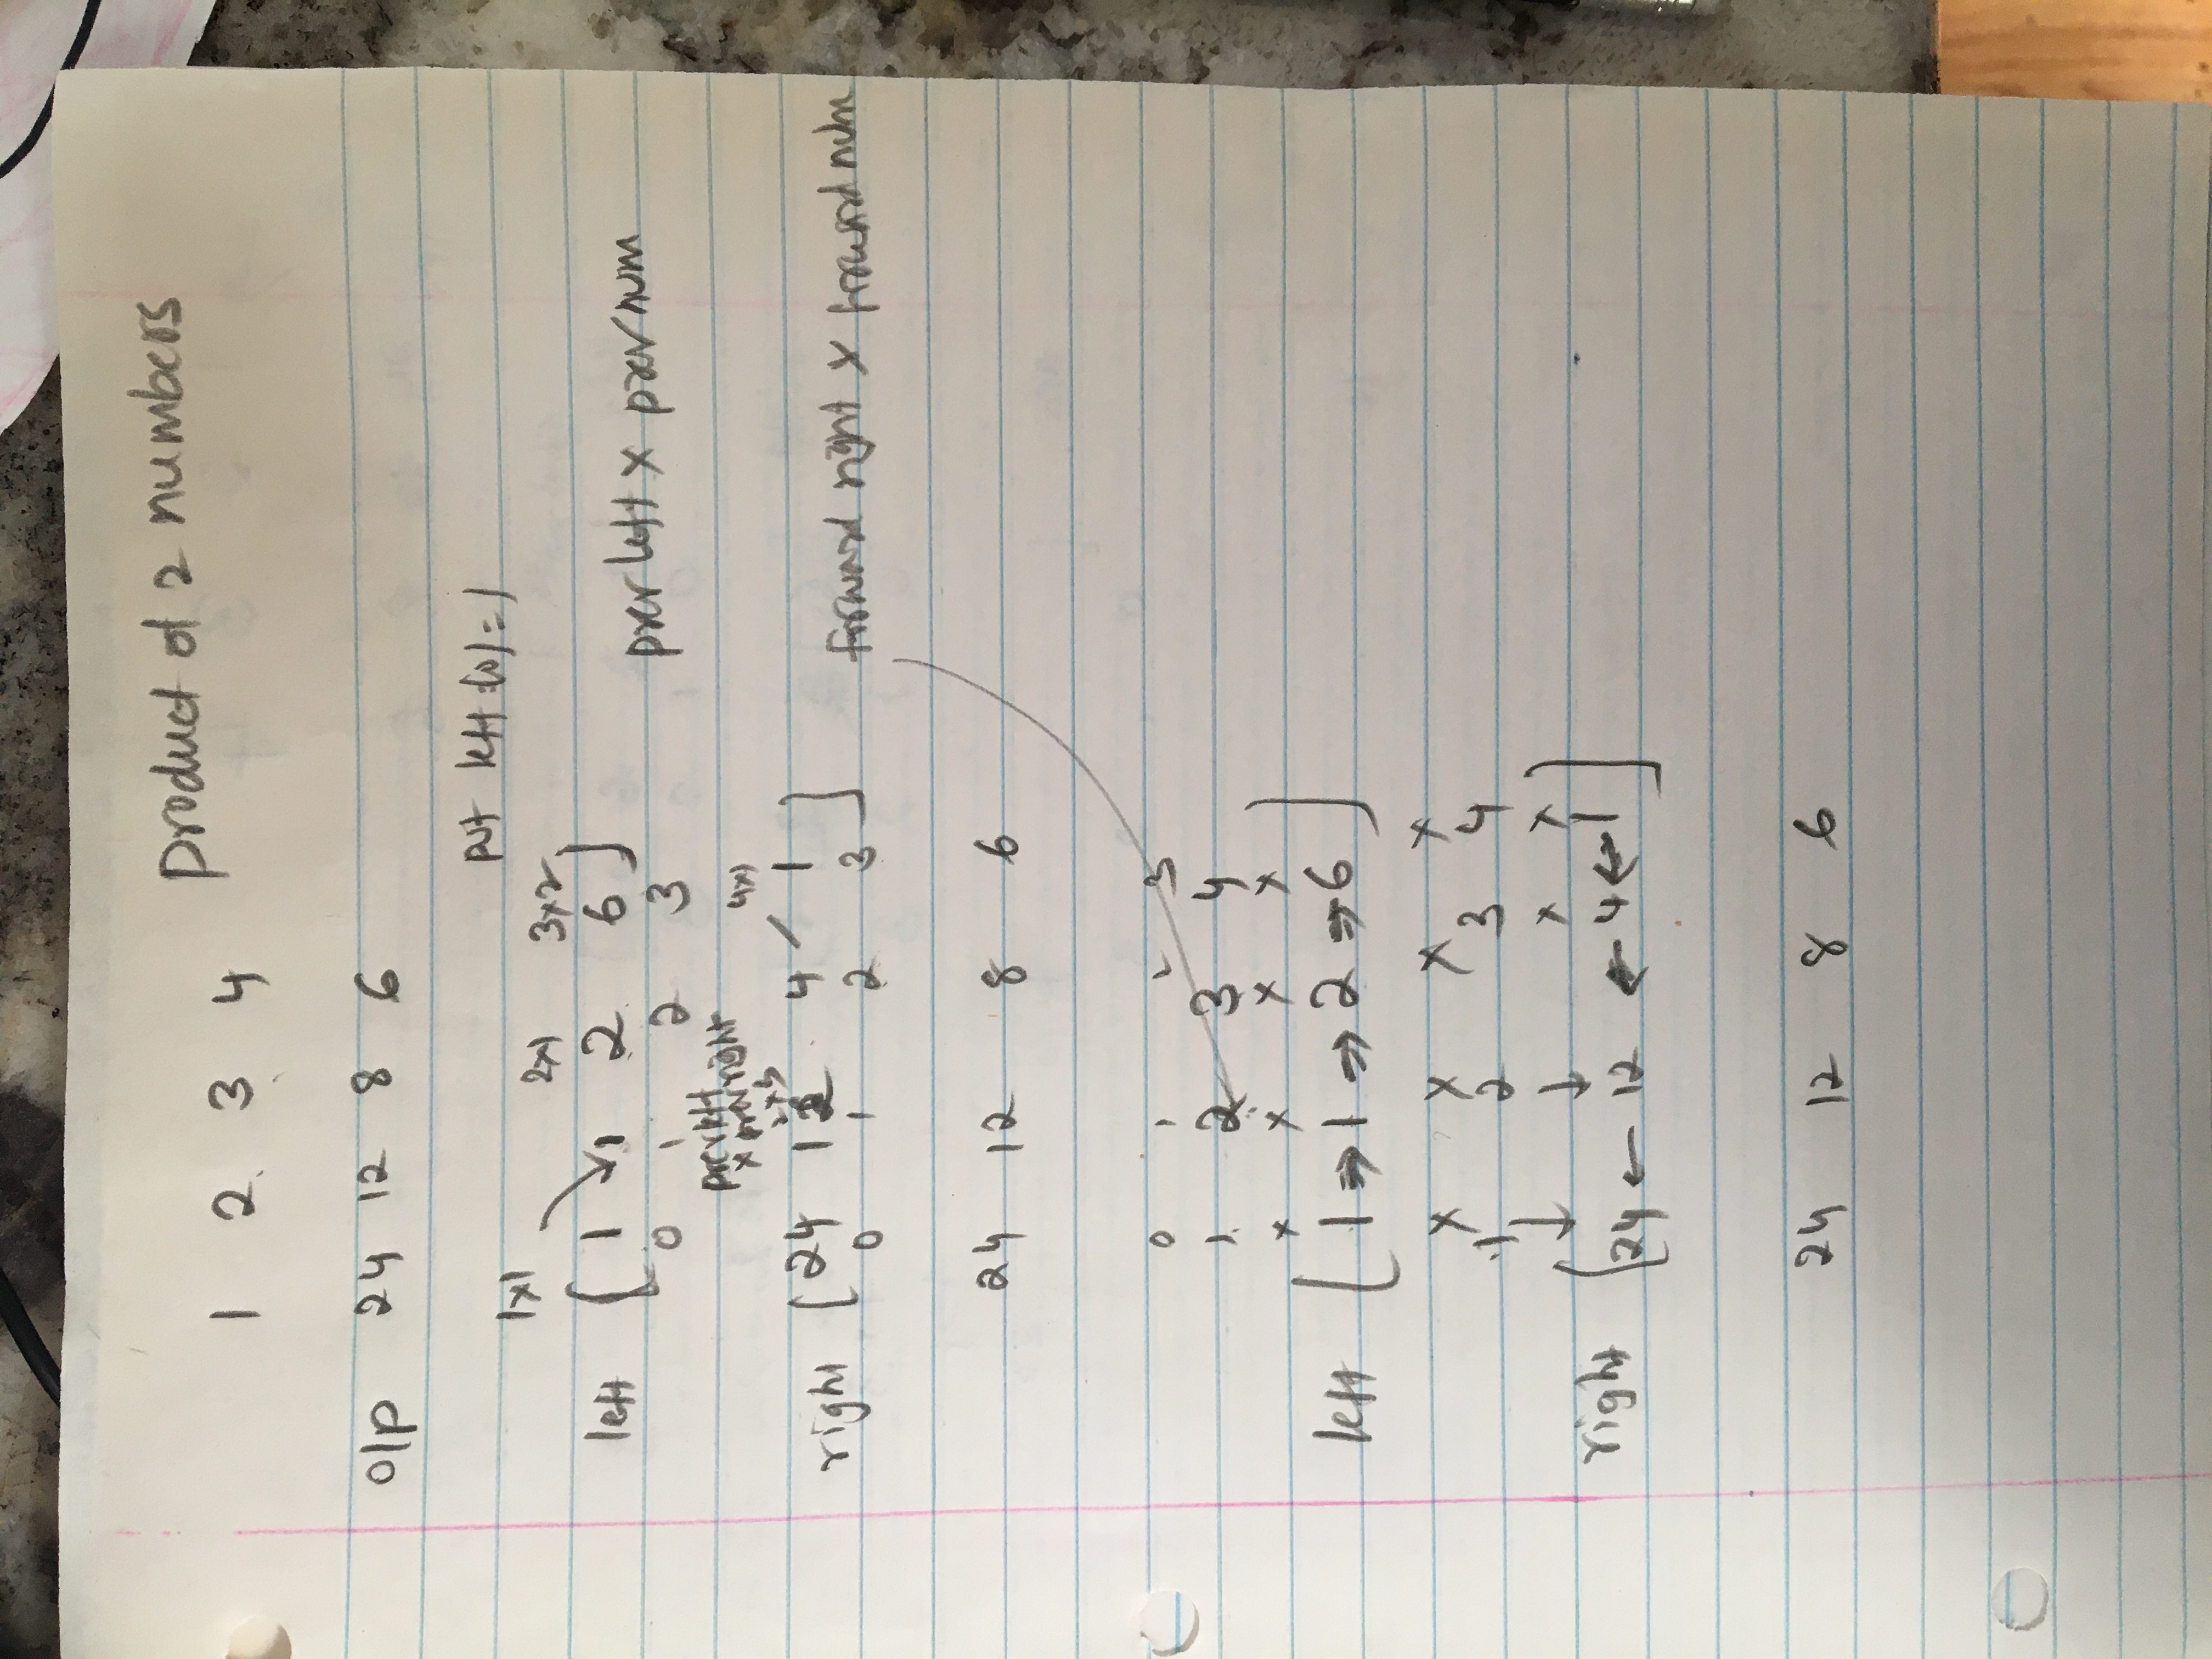 product of 2 numbers
1 2 3 4
o/p 24 12 8 6
put left (0) = 1
1x1 2x1 3x2
left [ 1 1 2 6 ]
prev left x prev num
0 1 2 3
prev left
x prev right
4x1
right [ 24 12 4 1 ]
forward right x forward num
0 1 2 3
24 12 8 6
0 1 2 3
1 2 3 4
x x x x
left [ 1 ⇒ 1 ⇒ 2 ⇒ 6 ]
x x x x
1 2 3 4
↓ ↓ x x
right [ 24 ← 12 ← 4 ← 1 ]
24 12 8 6